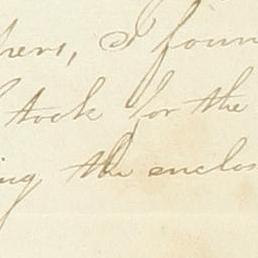 hers, I foun
stock for the
ing the enclos